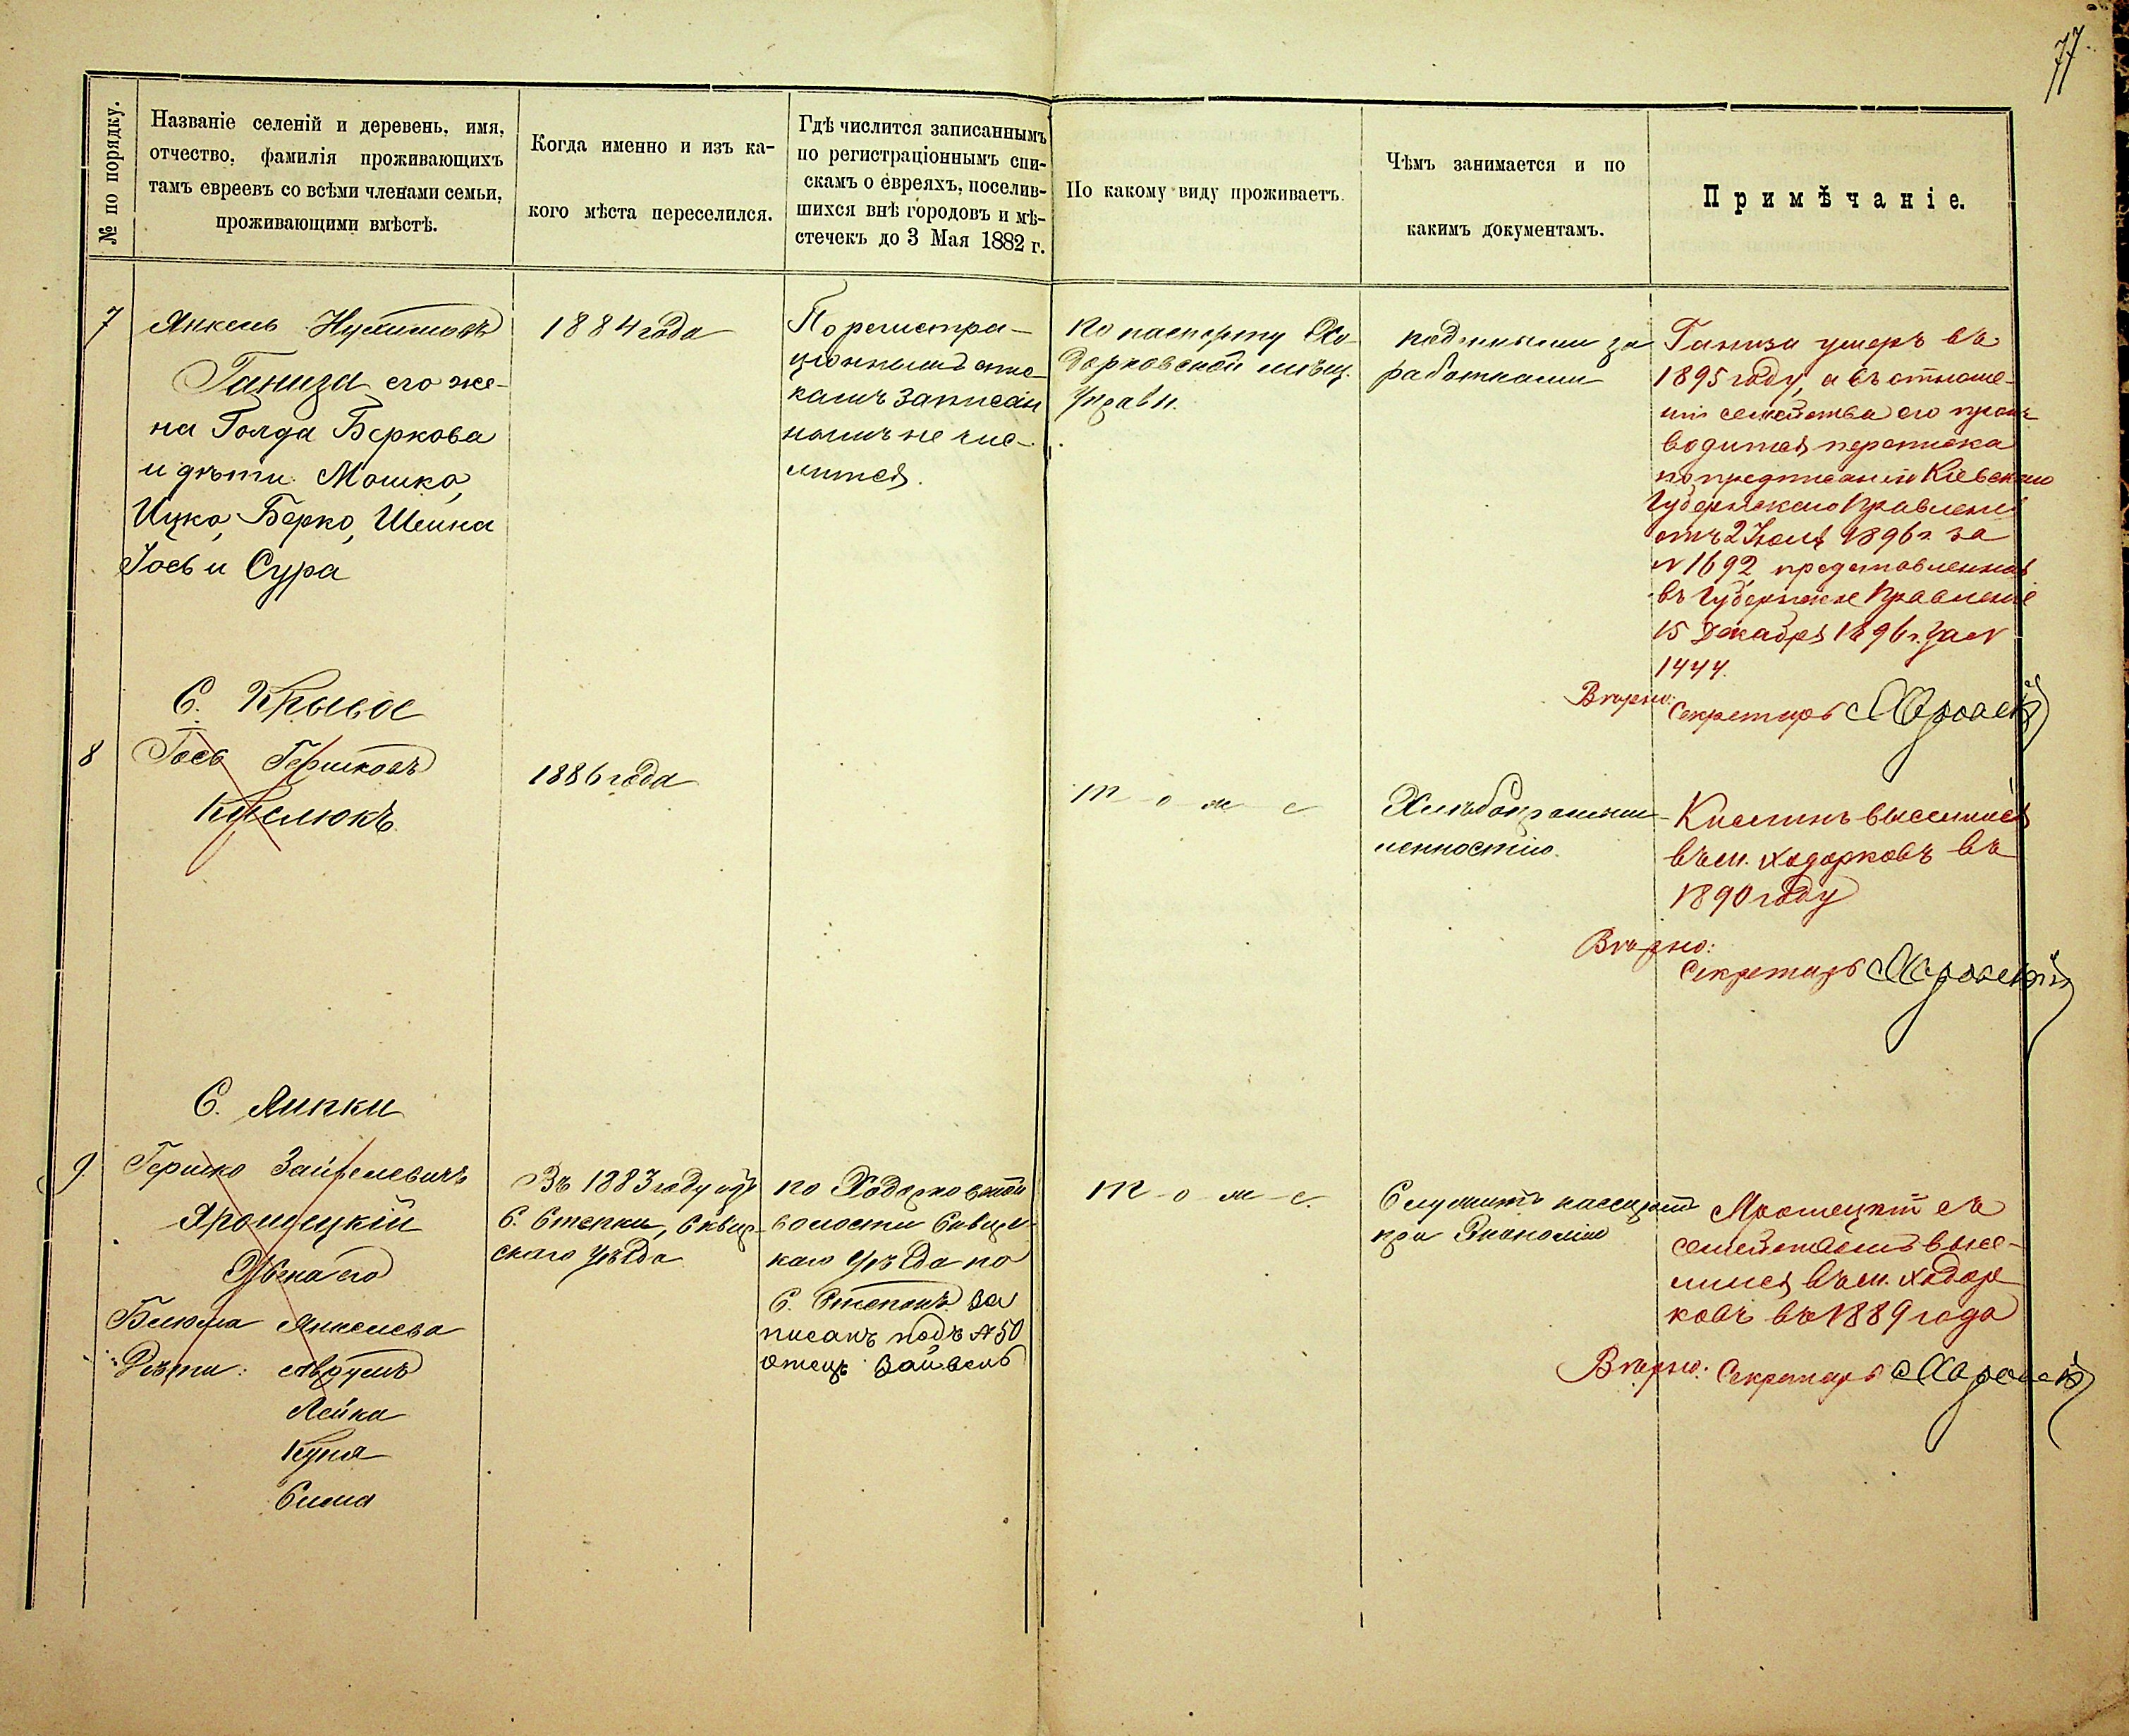 77
№ по порядку.
Названіе селеній и деревень, имя,
отчество, фамилія проживающихъ
тамъ евреевъ со всѣми членами семьи,
проживающими вмѣстѣ.
Когда именно и изъ ка-
кого мѣста переселился.
Гдѣ числится записаннымъ
по регистраціоннымъ спи-
скамъ о евреяхъ, поселив-
шихся внѣ городовъ и мѣ-
стечекъ до 3 Мая 1882 г.
По какому виду проживаетъ.
Чѣмъ занимается и по
какимъ документамъ.
Примѣчаніе.
7
Янкель Нухимовъ
Ганиза его же-
на Голда Беркова
и дѣти Мошко,
Ицко, Берко, Шейна
Іось и Сура
1884 года
По регистра-
ціоннымъ спис-
камъ записан
нымъ не чис-
лится.
по паспорту Хо-
дорковской мѣщ.
Управы.
поденными за
работками
Ганиза умеръ въ
1895 году, а въ отноше-
ніи семейства его произ
водится переписка
по предписанію Кіевскаго
Губернскаго Правленія
отъ 2 Іюля 1896 г. за
№ 1692 представленная
въ Губернское Правленіе
15 Декабря 1896 г. за №
1444.
Вѣрно:
Секретарь
С. Крывое
8
Іось Гершковъ
Кислюкъ
1886 года
т-о-ж-е
Хлѣбопромыш-
ленностію.
Кислюкъ выселился
въ м. Ходорковъ въ
1890 году
Вѣрно:
Секретарь
С. Липки
9.
Гершко Зайвелевичъ
Ярошецкій
Жена его
Блюма Янкелева
Дѣти: Аврумъ
Лейка
Куня
Сима
Въ 1883 году изъ
С. Степки, Сквир-
скаго уѣзда
по Ходорковской
волости Сквирс-
каго уѣзда по
С. Степокъ за
писанъ подъ № 50
отецъ Зайвель
т-о-ж-е.
Служитъ кассиромъ
при Экономіи
Ярошецкій съ
семействомъ высе-
лился въ м. Ходор
ковъ въ 1889 года
Вѣрно: Секретарь